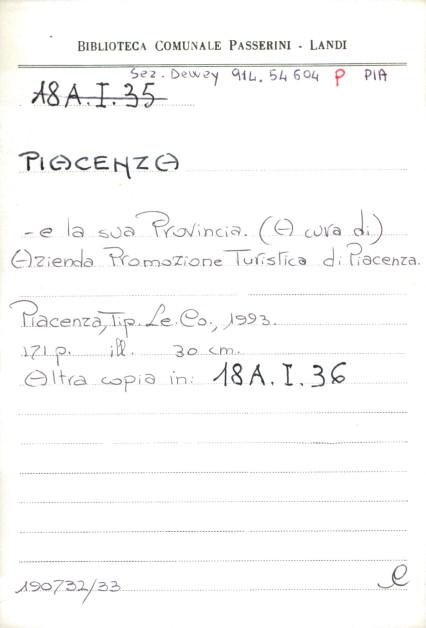 BIBLIOTECA COMUNALE PASSERINI - LANDI
Sez. Dewey 914.54604 P PIA
18A.I.35
PIACENZA
- e la sua Provincia. (A cura di)
Azienda Promozione Turistica di Piacenza.
Piacenza, Tip. Le. Co., 1993.
171 p. ill. 30 cm.
Altra copia in: 18A.I.36
190732/33
e